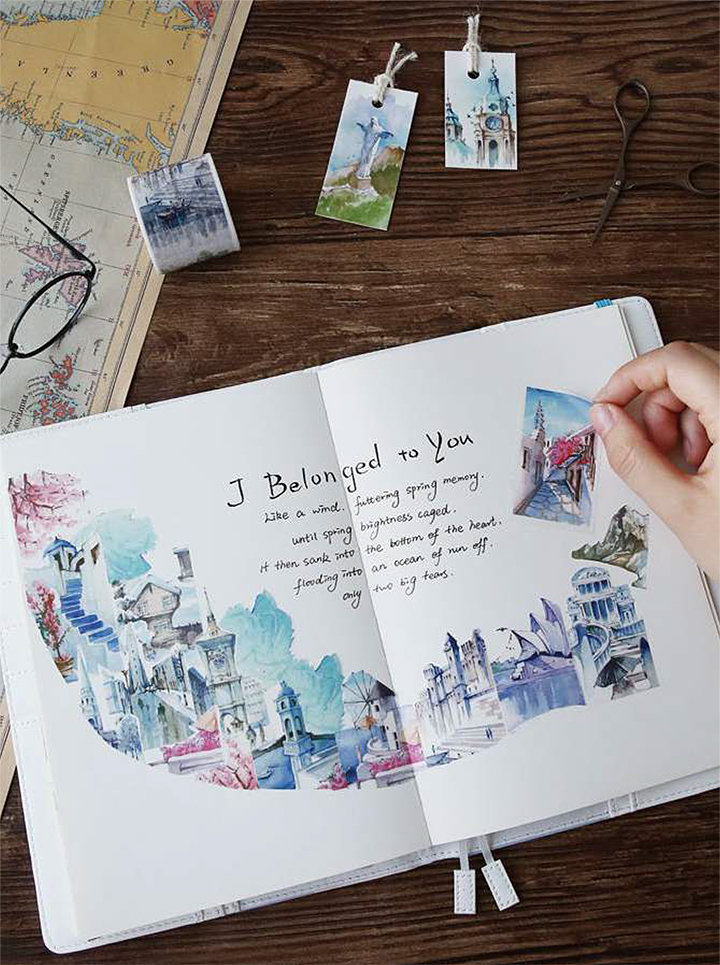 GREENLA
I Belonged to You
Like a wind. futtering spring memory.
until spring brightness caged.
it then sank into the bottom of the heart.
flooding into an ocean of run off.
only two big tears.